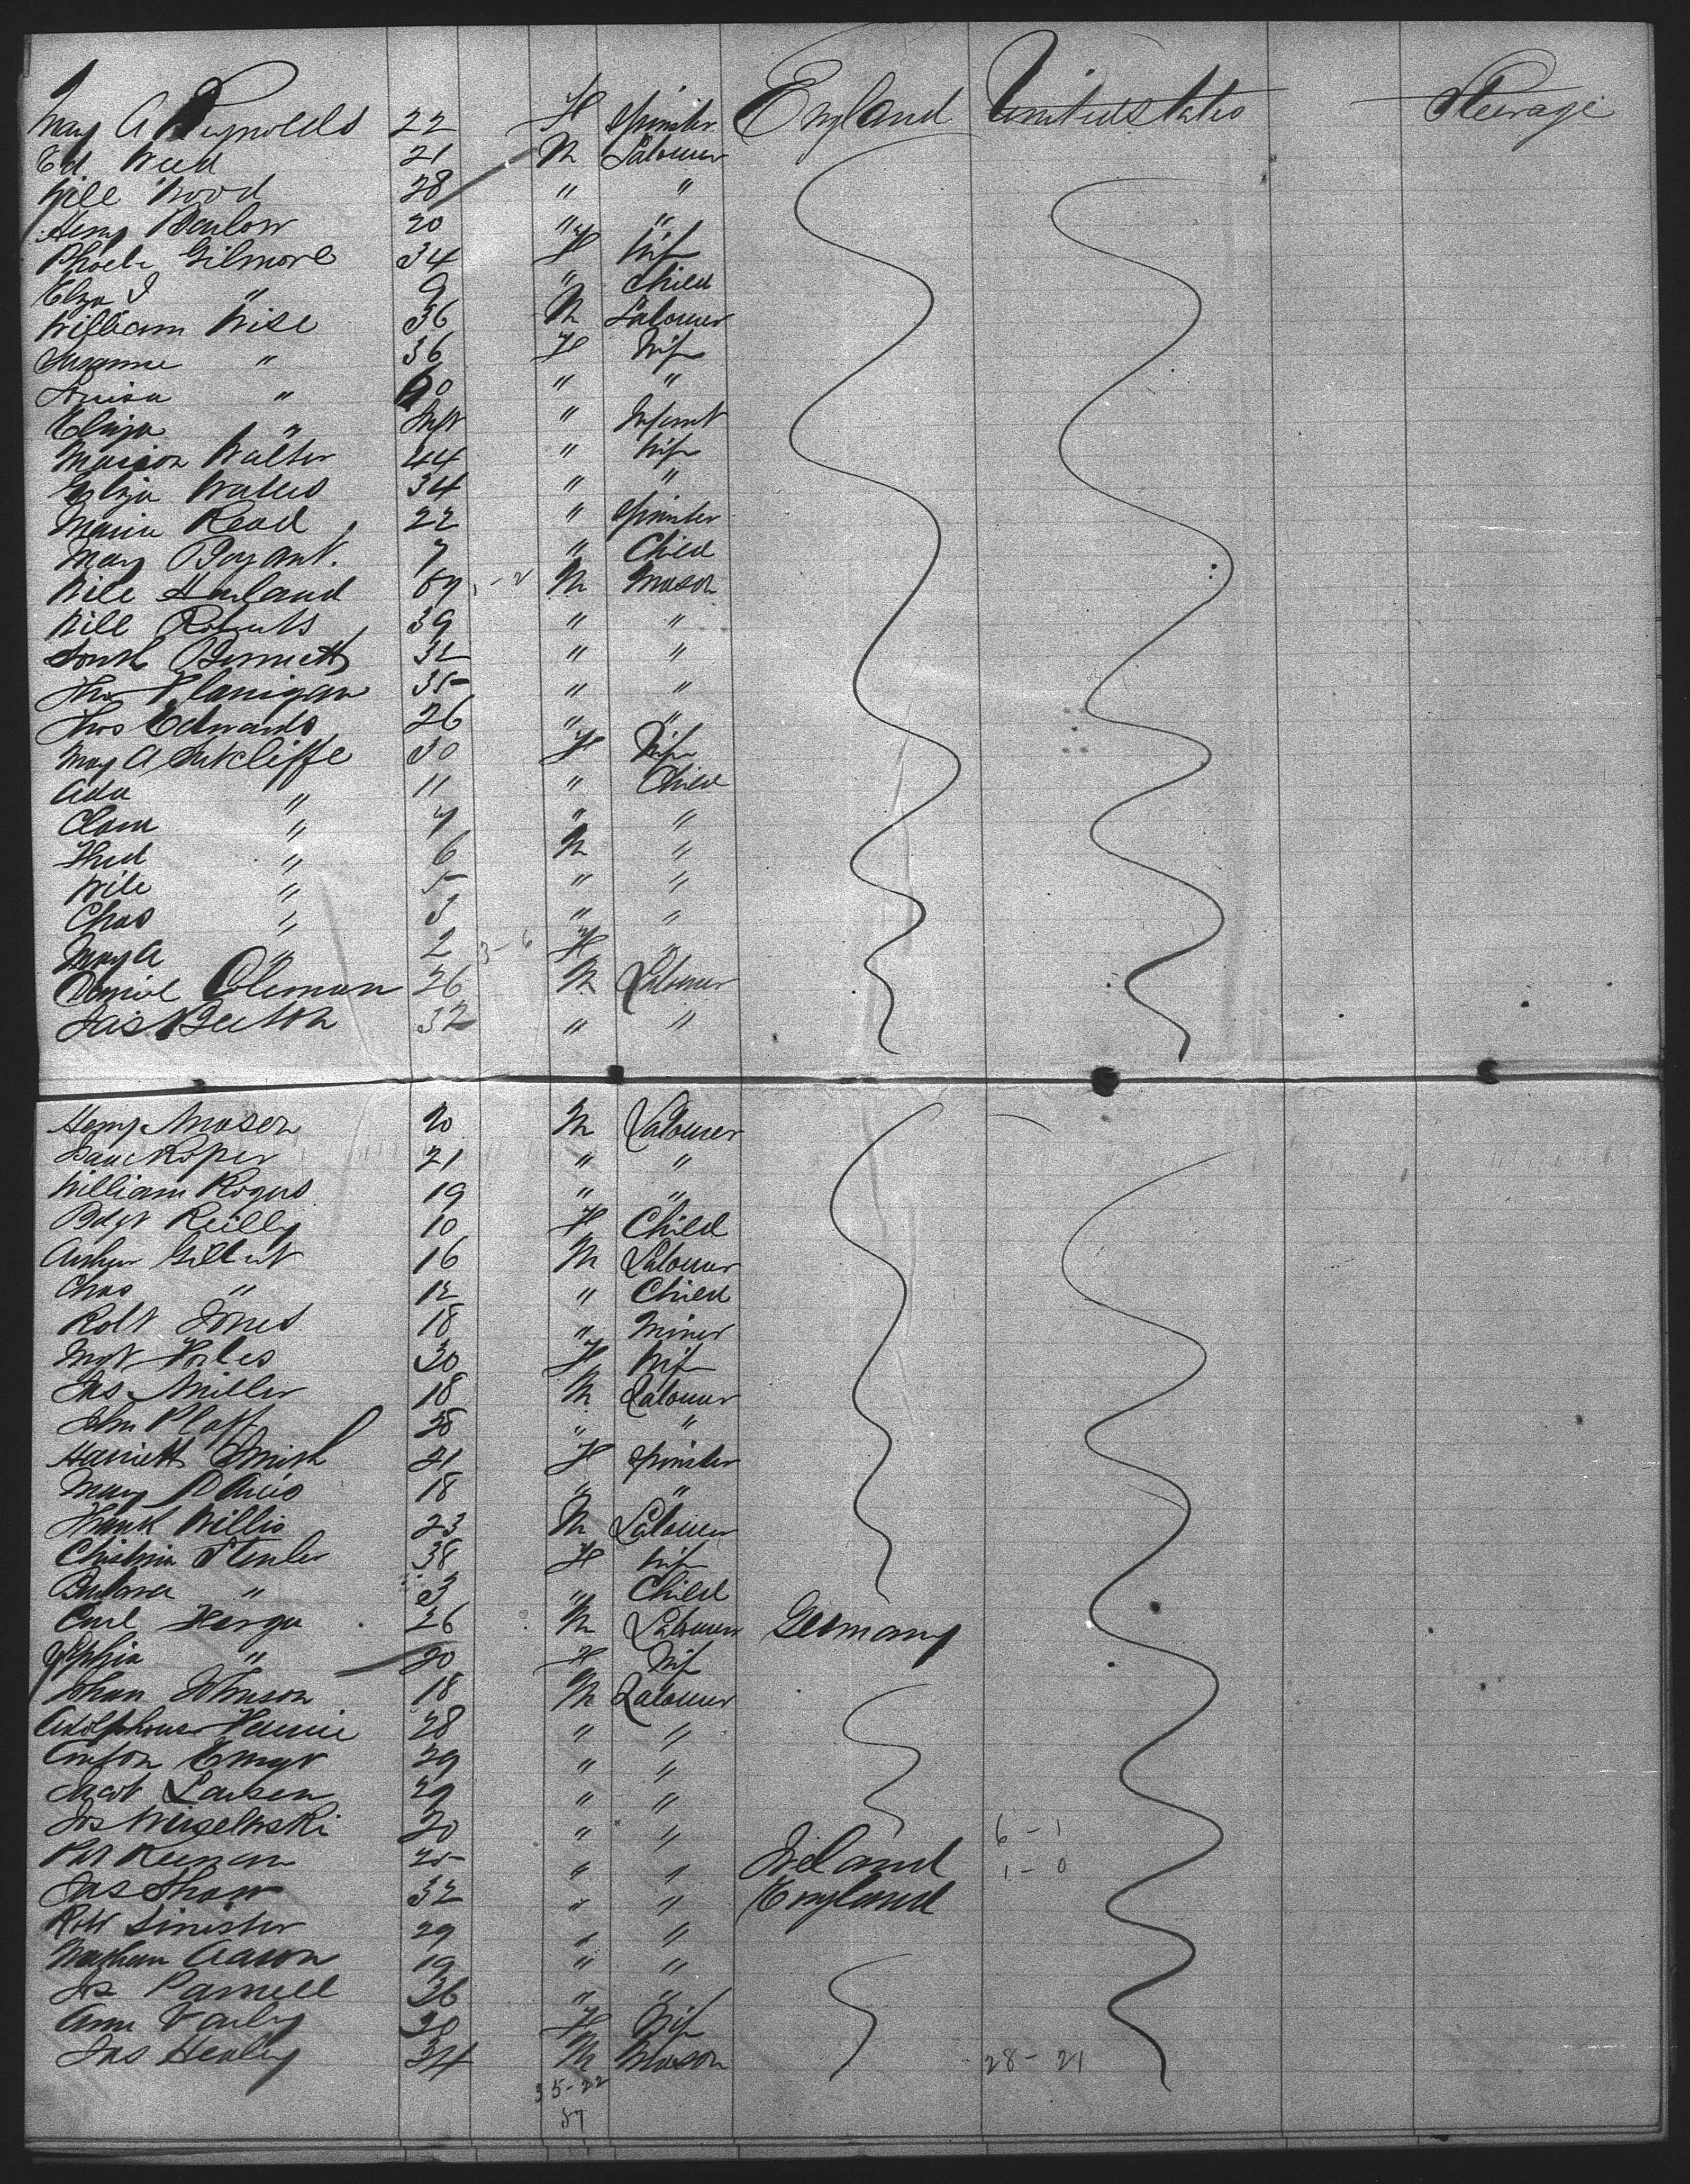 Mary A Reynolds 22 F Spinster England United States Steerage
Ed Weed 21 M Labourer
Will Wood 28 " "
Henry Barlow 20 " "
Phoebe Gilmore 34 F Wife
Eliza J " 9 " Child
William Wise 36 M Labourer
Susanne " 36 F Wife
Louisa " " "
Eliza " Inft " Infant
Marion Walter 44 " Wife
Eliza 34 " "
Maria Read 22 " Spinster
Mary Bryant. 7 " Child
Will Harland M Mason
Will Roberts 39 " "
Bennett 32 " "
Thos Flanigan 35 " "
Thos Edwards 26 " "
Mary A Sutcliffe 30 F Wife
Ada " 11 " Child
Clara " 7 " "
Fred " 6 M "
Will " 5 " "
Chas " 3 " "
Mary A " 2 F "
Daniel Coleman 26 M Labourer
Jas Beeton 32 " "
Henry Mason 20 M Labourer
Isaac Roper 21 " "
William Rogers 19 " "
Bdgt Reilly 10 F Child
Arthur Gilbert 16 M Labourer
Chas " 12 " Child
Robt Jones 18 " Miner
Mgt 30 F Wife
Jas Miller 18 M Labourer
John Platt 28 " "
Harriett Smith 21 F Spinster
Mary Davis 18 " "
Frank Willis 23 M Labourer
Christina 38 F Wife
Barbara " 3 " Child
Carl 26 M Labourer Germany
Sophia " 20 F Wife
Johan Johnson 18 M Labourer
Adolphous 28 " "
Anton 29 " "
Jacob Larsen 29 " "
Jos 20 " " 6 - 1
Pat Keenan 25 " " Ireland 1 - 0
Jas Shaw 32 " " England
Robt Sinister 29 " "
Aaron 19 " "
Jos Parnell 36 " "
Ann Varley 28 F Wife
Jas Henley 34 M Mason 28 - 21
35 - 22
57